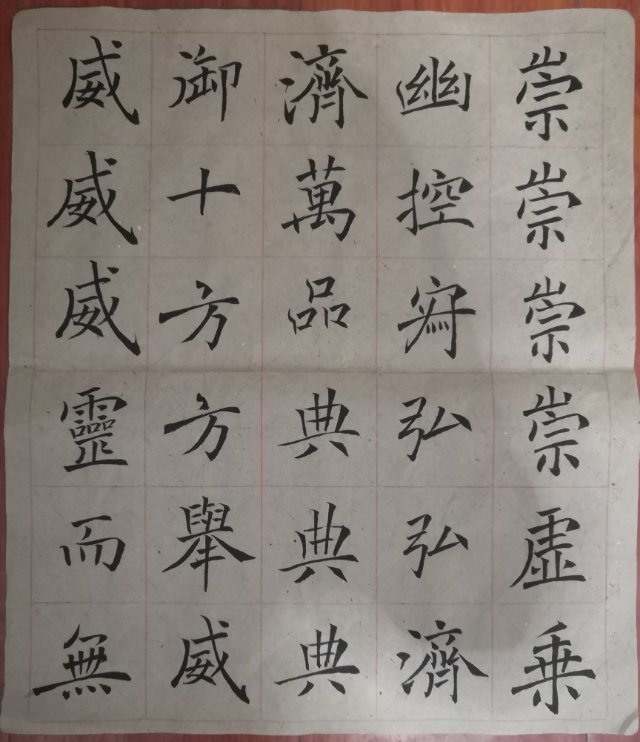 崇崇崇崇虚乘
幽控寂弘弘濟
濟萬品典典典
御十方方舉威
威威威靈而無